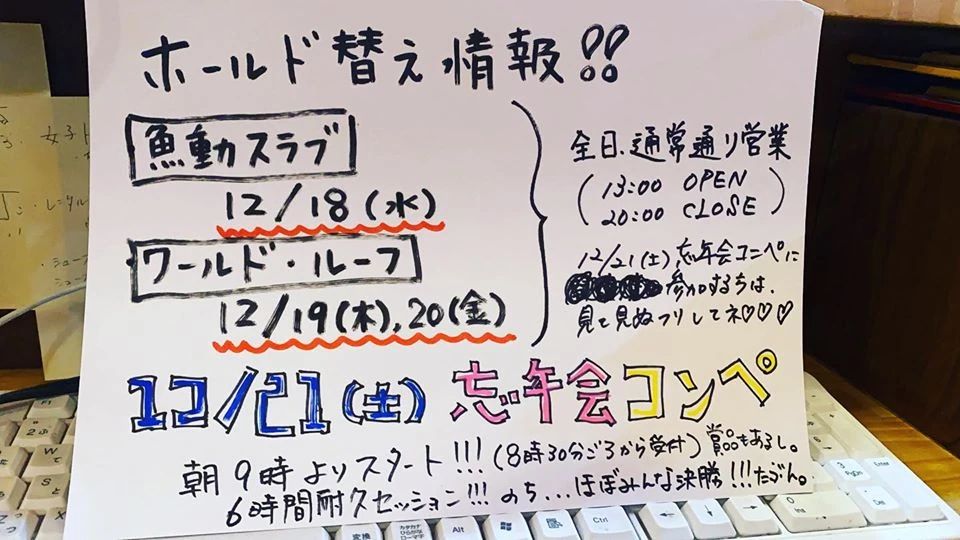 ホールド替え情報!!
魚動スラブ
12/18(水)
ワールド・ルーフ
12/19(木),20(金)
全日、通常通り営業
(13:00 OPEN
20:00 CLOSE)
12/21(土)忘年会コンペに
参加するちは、
見て見ぬフリしてネ♡♡♡
12/21(土)忘年会コンペ
朝9時よりスタート!!!(8時30分ごろから受付)賞品もあるし。
6時間耐久セッション!!!のち...ほぼみんな決勝!!!たぶん。
変換
カタカナ
ひらがな
ローマ字
Alt
Ctrl
Ins
Enter
PgDn